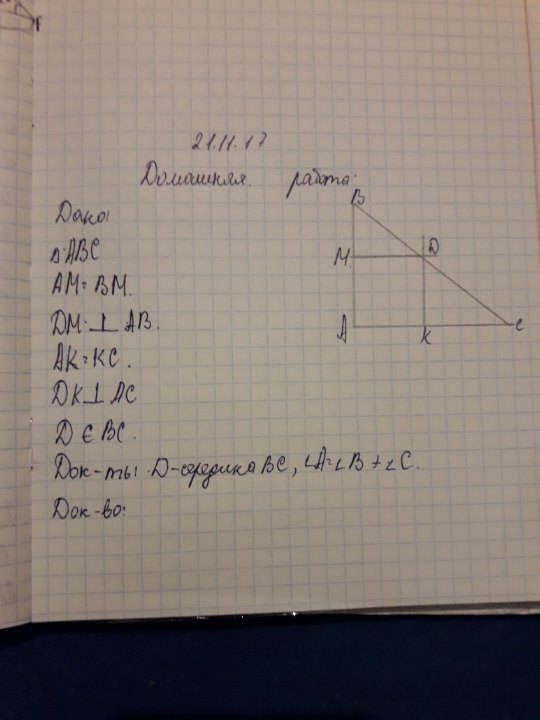 21.11.17
Домашняя. работа.
Дано:
Δ ABC
AM = BM.
DM ⊥ AB.
AK = KC.
DK ⊥ AC
D ∈ BC.
Док-ть: D-середина BC, ∠A = ∠B + ∠C.
Док-во:
B
M D
A K C